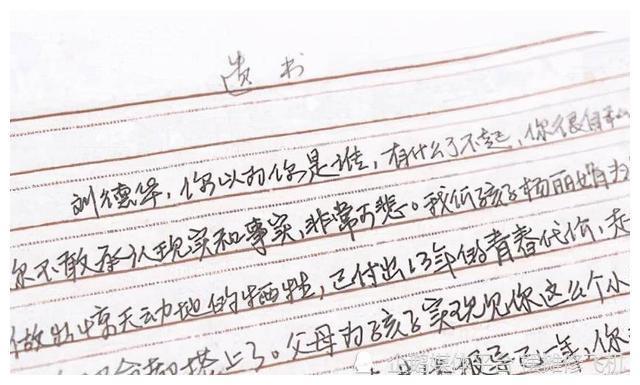 遗书
刘德华，你以为你是谁，有什么了不起，你很自私
你不敢承认现实和事实，非常可悲。我低孩子杨丽娟为
做出惊天动地的牺牲，已付出13年的青春代价，走
搭上了。父母为孩子实现见你这么个小